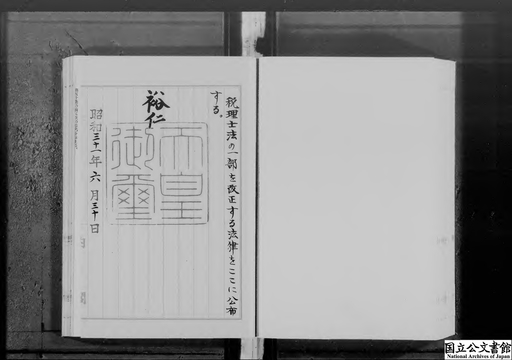 税理士法の一部を改正する法律をここに公布
する。
裕仁
天皇
御璽
昭和三十一年六月三十日
国立公文書館
National Archives of Japan